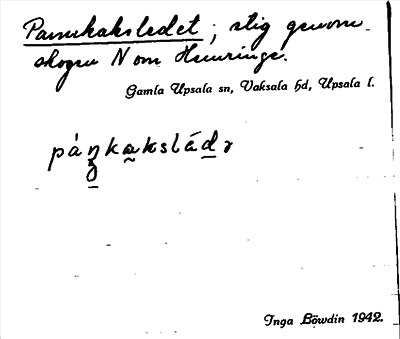 Pannkaksledet; stig genom
skogen N om Henringe.
Gamla Upsala sn, Vaksala hd, Upsala l.
Inga Böwdin 1942.